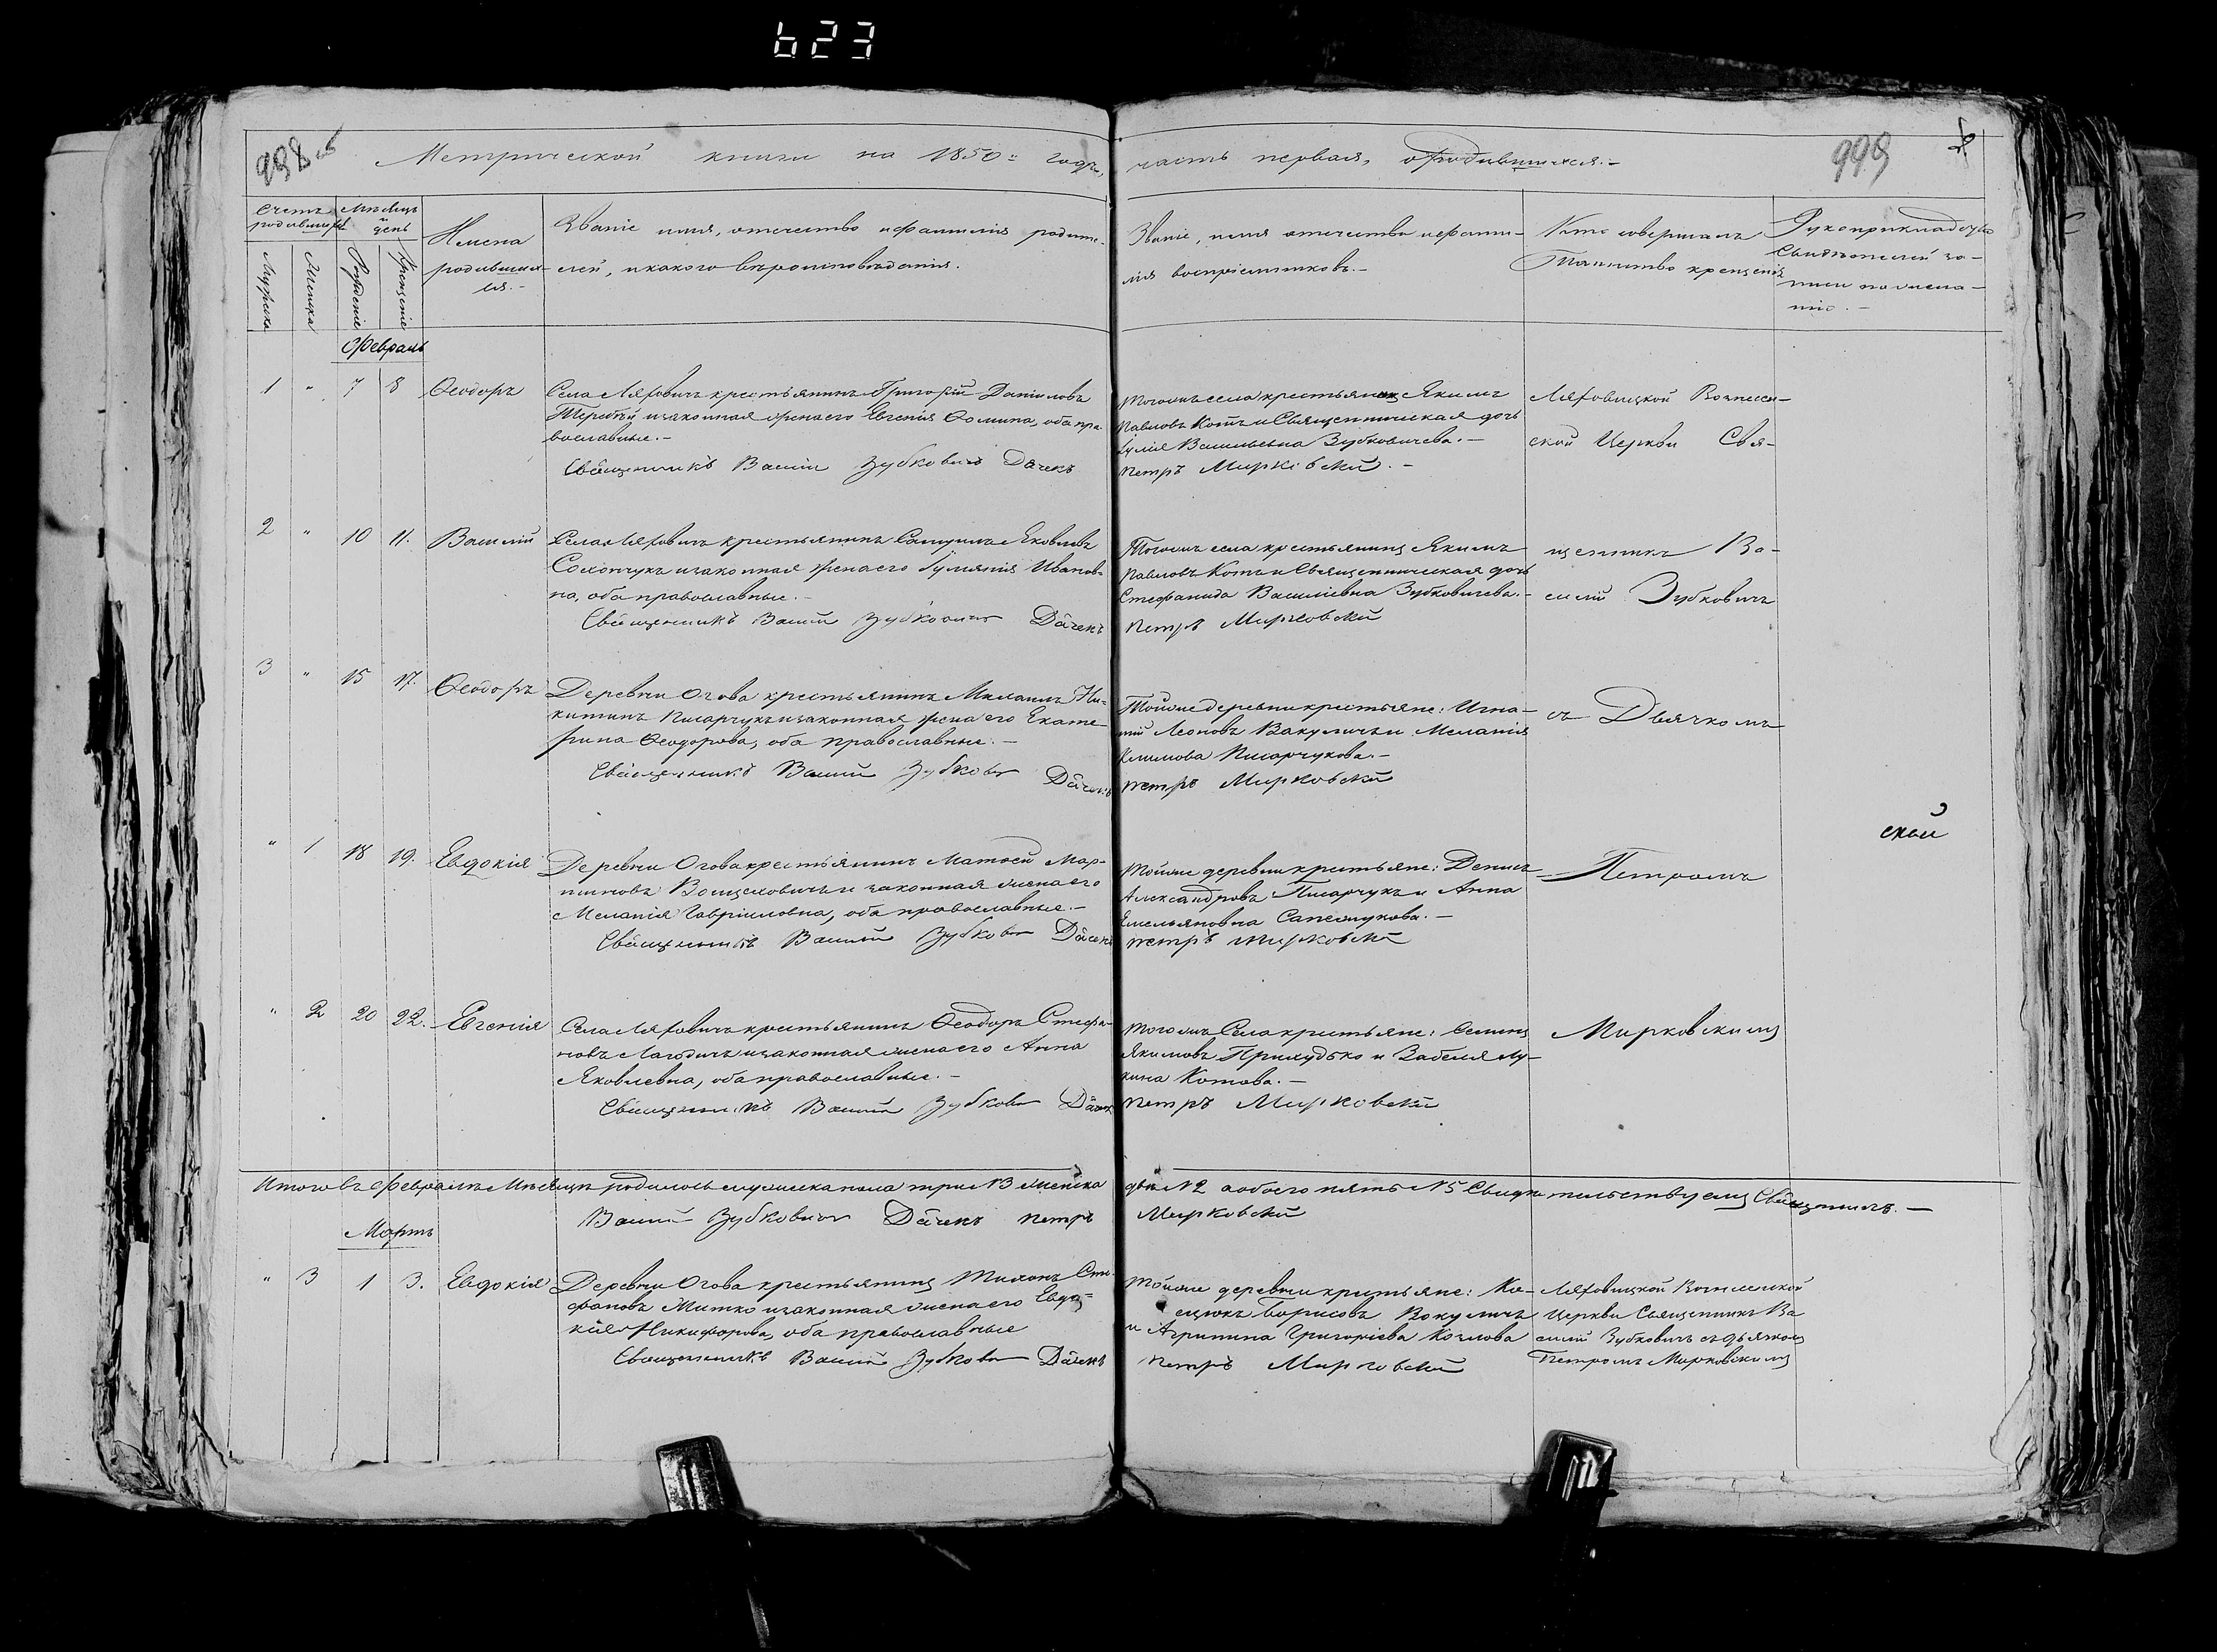 623
998 об
Метрической книги на 1850: годъ, часть первая, о родившихся.-
999
Счетъ родившихся
Мужеска
Женска
Мѣсяцъ и день
Рожденіе
Крещеніе
Имена
родивших-
ся.-
Званіе имя, отечество и фамилія родите-
лей, и какого вѣроисповѣданія.
Званіе, имя отечество и фами-
лія воспріемниковъ.-
Кто совершалъ
Таинство крещенія
Рукоприкладство
Свидѣтелей за-
писи по жела-
нію.-
Февраль
1 " 7 8 Ѳеодоръ
Села Ляховичъ крестьянинъ Григорій Даніиловъ
Теребей и законная жена его Евгенія Ѳомина, оба пра-
вославные.-
Священникъ Василій Зубковичъ Дьячекъ
Тогожъ села крестьянинъ Якимъ
Павловъ Котъ и Священническая дочь
Іулія Васильевна Зубковичева.-
Петръ Мирковскій.-
Ляховицкой Вознесен-
ской Церкви Свя-
2 " 10 11. Василій
Села Ляховичъ крестьянинъ Самуилъ Яковлевъ
Сохончукъ и законная жена его Іуліанія Иванов-
на, оба православные.-
Священникъ Василій Зубковичъ Дьячекъ
Тогожъ села крестьянинъ Якимъ
Павловъ Котъ и Священническая дочь
Стефанида Василіевна Зубковичева.-
Петръ Мирковскій
щенникъ Ва-
силій Зубковичъ
3 " 15 17. Ѳеодоръ
Деревни Огова крестьянинъ Михаилъ Ни-
китинъ Писарчукъ и законная жена его Екате-
рина Ѳеодорова, оба православные.-
Священникъ Василій Зубковичъ Дьячекъ
Тойже деревни крестьяне: Игна-
тій Леоновъ Вакуличъ и Меланія
Климова Писарчукова.-
Петръ Мирковскій
съ Дьячкомъ
ской
" 1 18 19. Евдокія
Деревни Огова крестьянинъ Матѳей Мар-
тиновъ Войцеховичъ и законная жена его
Меланія Гавріиловна, оба православные.-
Священникъ Василій Зубковичъ Дьячекъ
Тойже деревни крестьяне: Денисъ
Александровъ Писарчукъ и Анна
Емельяновна Сапежукова.-
Петръ Мирковскій
Петромъ
" 2 20 22. Евгенія
Села Ляховичъ крестьянинъ Ѳеодоръ Стефа-
новъ Лагодичъ и законная жена его Анна
Яковлевна, оба православные.-
Священникъ Василій Зубковичъ Дьячекъ
Тогожъ Села крестьяне: Семенъ
Якимовъ Прихудько и Забеля Лу-
кина Котова.-
Петръ Мирковскій
Мирковскимъ
Итого въ Февралѣ Мѣсяцѣ родилось мужеска пола три N3 женска двѣ N2 а обоего пять N5 Свидѣтельствуемъ Священникъ.-
Василій Зубковичъ Дьячекъ Петръ Мирковскій
Мартъ
" 3 1 3. Евдокія
Деревни Огова крестьянинъ Тихонъ Сте-
фановъ Митко и законная жена его Евдо-
кія Никифорова, оба православные
Священникъ Василій Зубковичъ Дьячекъ
Тойже деревни крестьяне:
Борисовъ Вакуличъ
и Агрипина Григоріева Козлова
Петръ Мирковскій
Ляховицкой Вознесенской
Церкви Священникъ Ва
силій Зубковичъ съ дьячкомъ
Петромъ Мирковскимъ